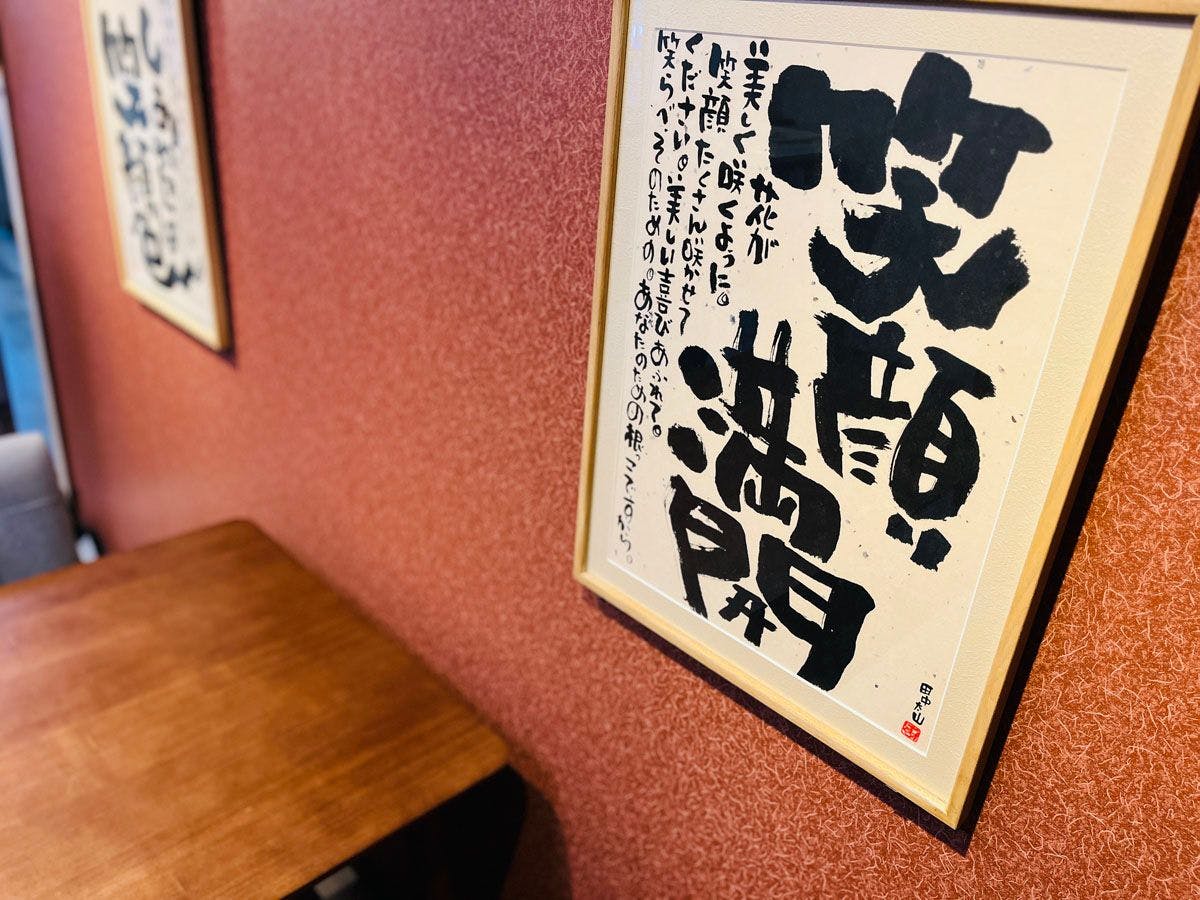 笑顔
満開
花が
美しく咲くように。
笑顔たくさん咲かせて
ください。美しい喜びあふれて。
笑らべ。そのための。あなたのための根っこですから。
田中太山